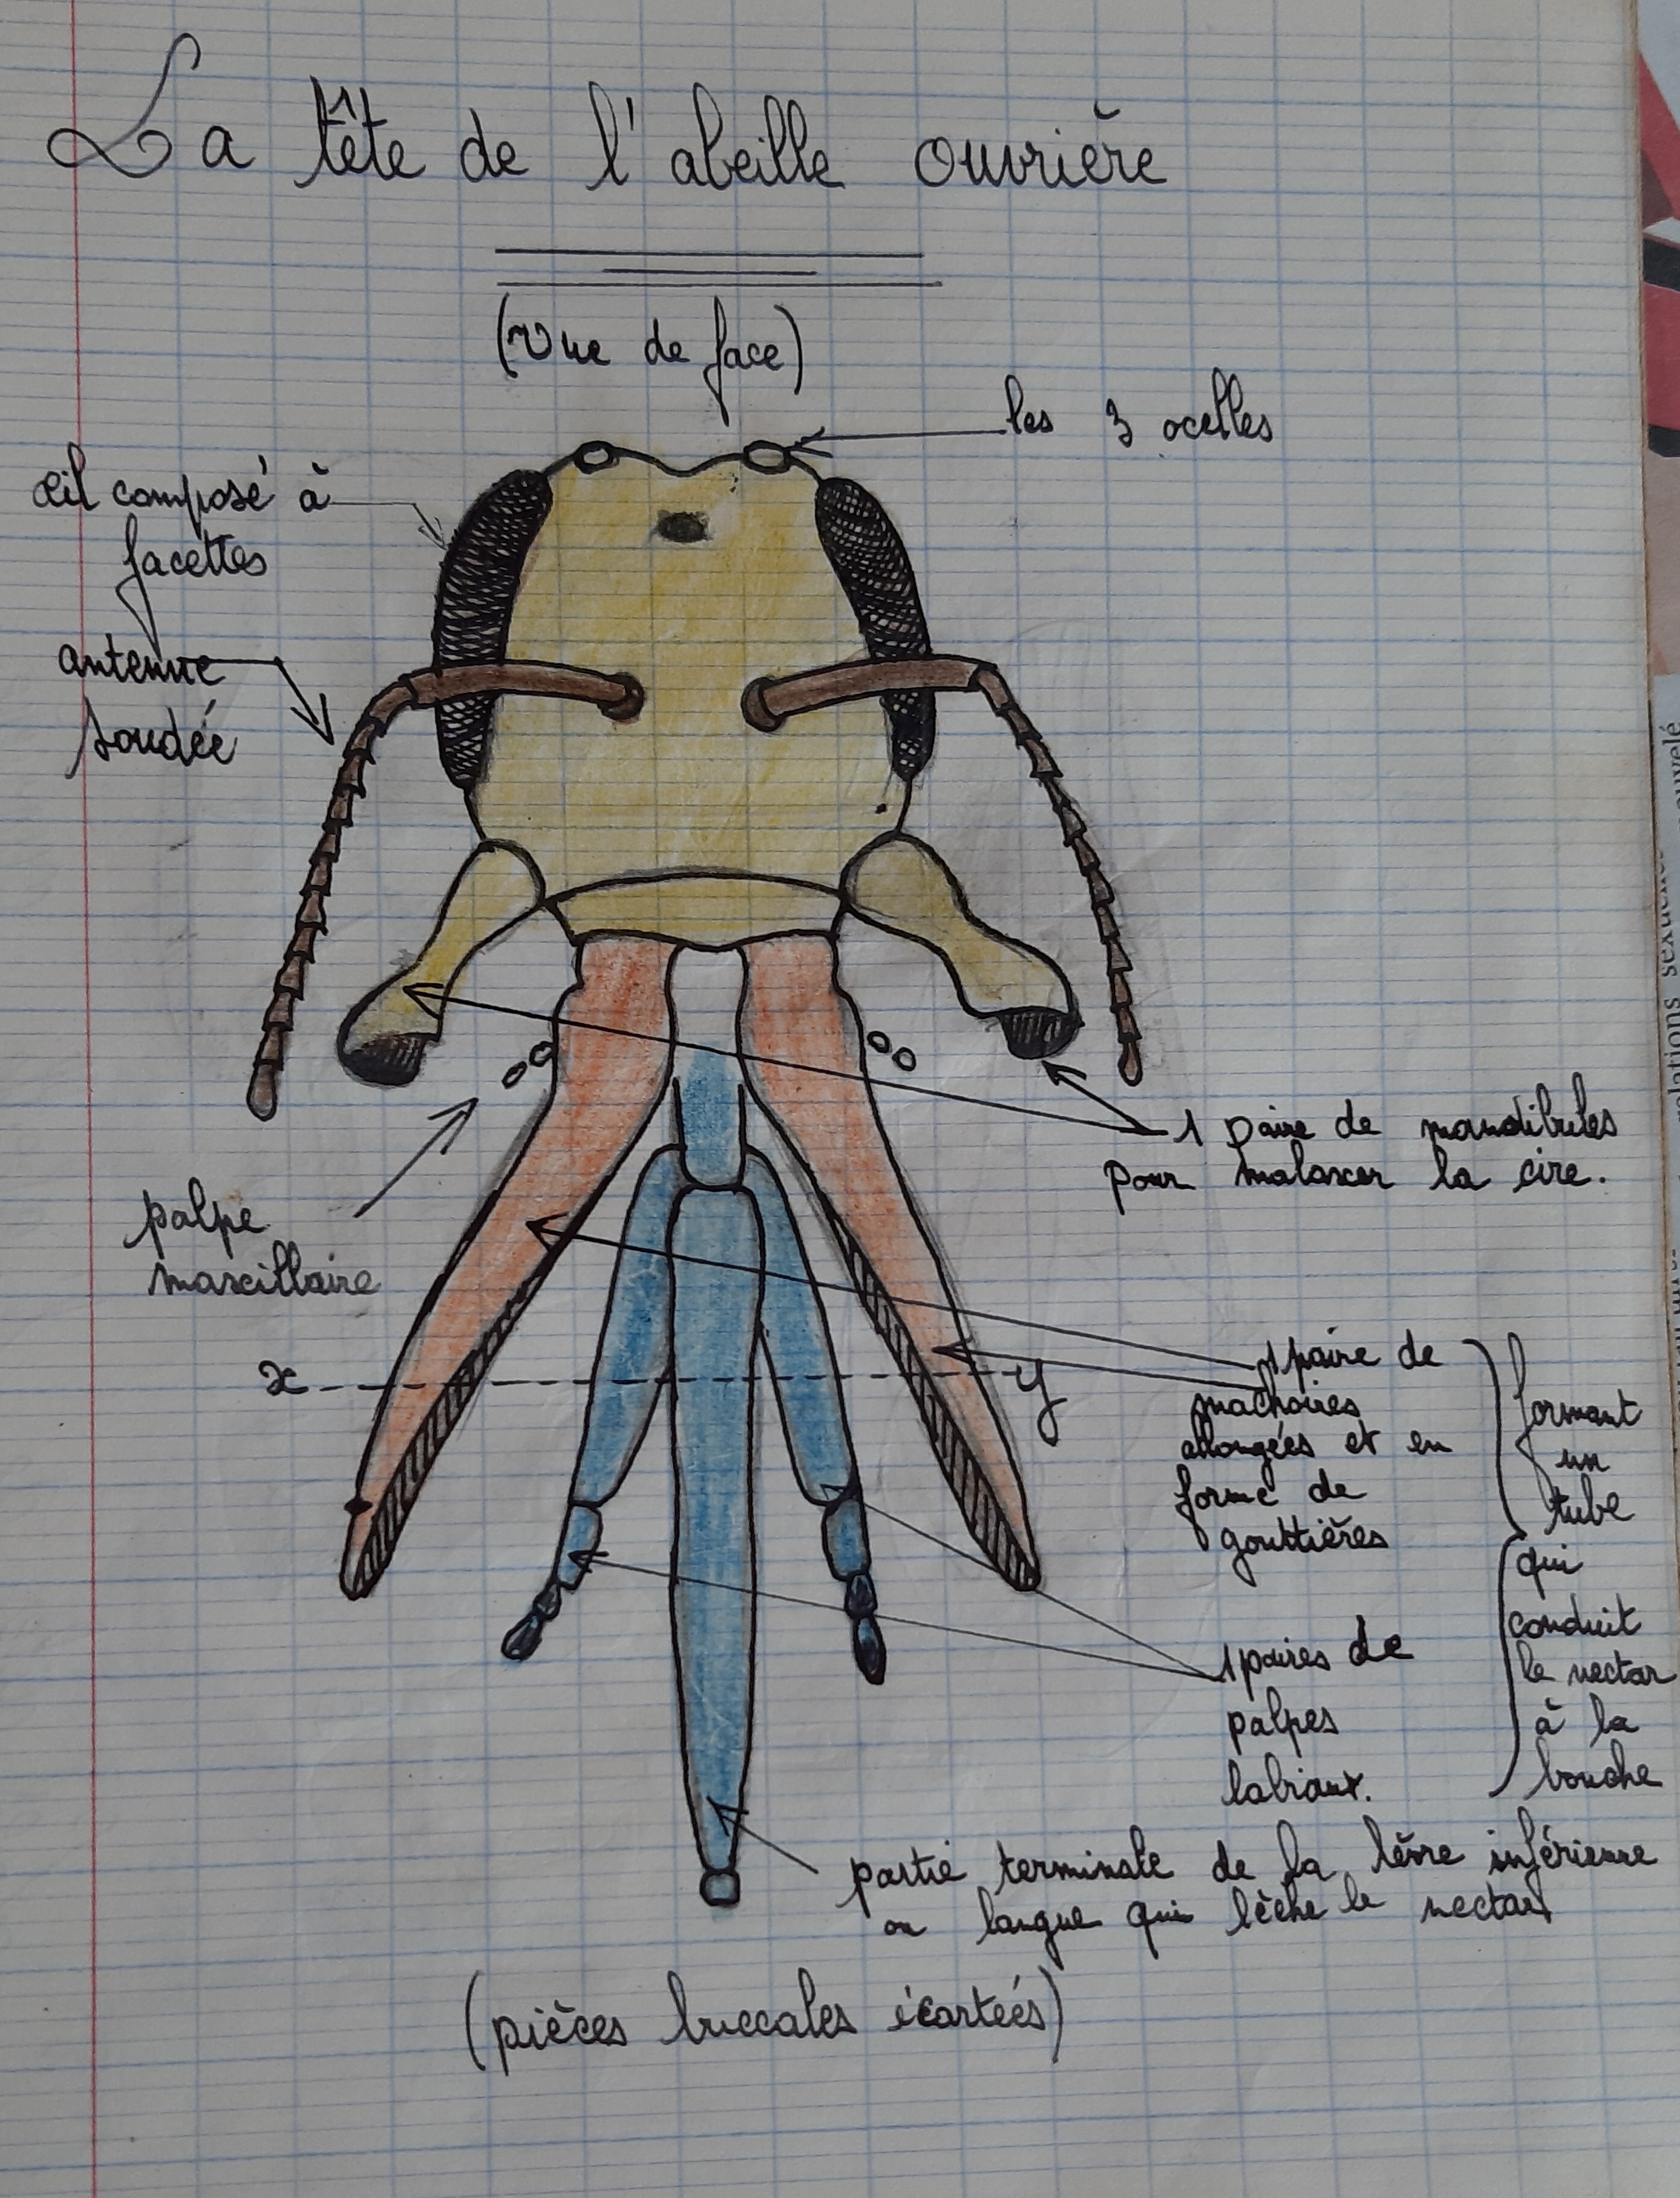 La tête de l'abeille ouvrière
(Vue de face)
les 3 ocelles
œil composé à
facettes
antenne
soudée
1 paire de mandibules
pour malaxer la cire.
palpe
maxillaire
x
y
1 paire de
machoires
allongées et en
forme de
gouttières
formant
un
tube
qui
conduit
le nectar
à la
bouche
1 paires de
palpes
labiaux.
partie terminale de la lèvre inférieure
ou langue qui lèche le nectar
(pièces buccales écarteés)